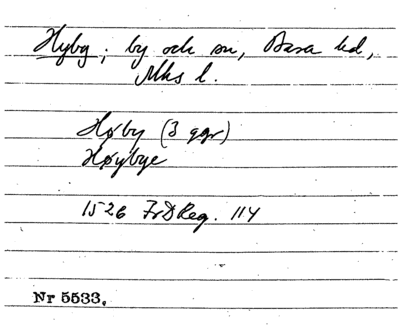 Hyby; by och sn, Bara hd,
Mhs l.
Høby (3 ggr)
Høybye
1526 FrDReg. 114
Nr 5533.